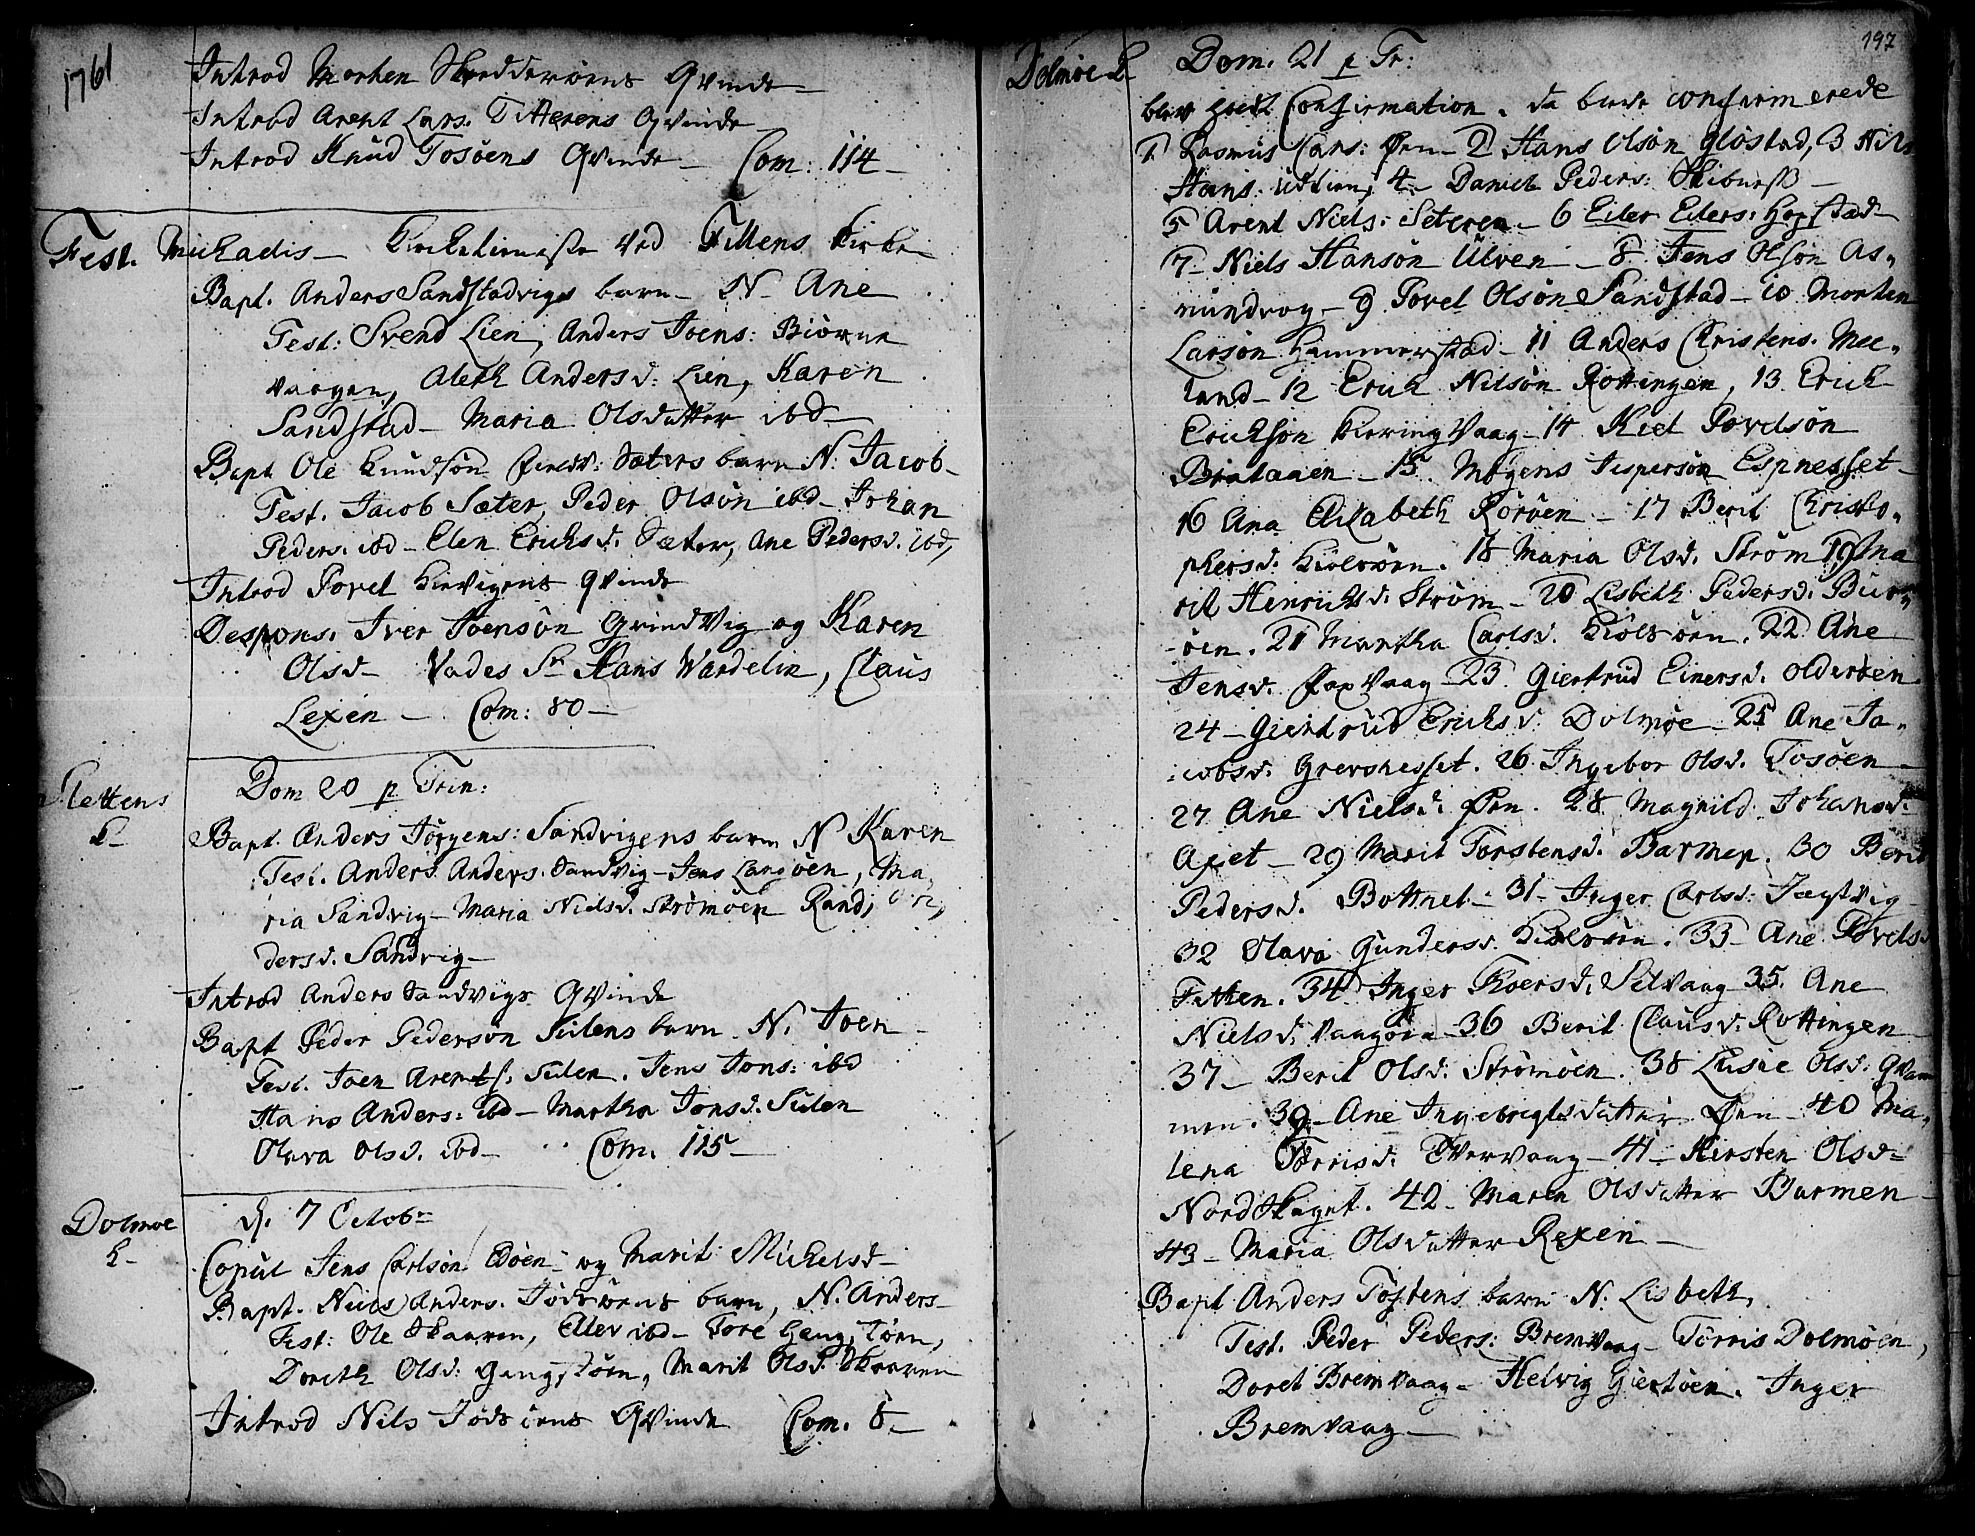 1761
Introd Morten Skredderøens Qvinde
Introd Arent Lars. Titterens Qvinde
Introd Knud Tosøens Qvinde Com: 114
Fest. Michaelis Kirketieneste ved Fillens Kirke
Bapt. Anders Sandstadvigs barn N. Ane
Test: Svend Lien, Anders Joens: Biørne
vargen, Aleth Andersd: Lien, Karen
Sandstad Maria Olsdatter ibd
Bapt Ole Knudsøn Sæters barn N: Jacob
Test. Jacob Sæter, Peder Olsøn ibd Johan
Peders. ibd Elen Ericksd. Sæter, Ane Pedersd. ibd,
Introd Povel Qvinde
Despons. Iver Joensøn Grindvig og Karen
Olsd Sr Hans Wardelin, Claus
Lexen Com: 80
Slettens
K
Dom 20 p Trin:
Bapt. Anders Jørgens: Sandvigens barn N Karen
Test. Anders Anders. Sandvig Jens Langøen, Ma,
ria Sandvig Maria Nielsd. Strømøen Randi
dersd. Sandvig
Introd Anders Sandvigs Qvinde
Bapt Peder Pedersøn Sulens barn N. Joen
Test. Joen Arents. Sulen. Jens Jons: ibd
Hans Anders: ibd Martha Jonsd. Sulen
Olava Olsd. ibd Com. 115
Dolmøe
K
d. 7 Octobr
Copul Jens Carlsøn Edøen og Marit Michelsd
Bapt. Niels Anders. barn, N. Anders
Test: Ole Skaaren, Eler ibd Tore
Doreth Olsd: Marit Olsd. Skaaren
Introd Nils Qvinde Com. 8
197
Dolmøe K
Dom. 21 p Tr:
blev holdt Confirmation. da bleve confirmerede
1. Rasmus Lars: Øen 2 Hans Olsøn Glostad, 3 Nils
Hans. Udtian, 4 Daniel Peders: Skibnes
5 Arent Niels: Seteren 6 Eiler Eilers: Hopstad
7 Niels Hansøn Ulven 8 Jens Olsøn As,
mundvog 9 Povel Olsøn Sandstad 10 Morten
Larsøn Hammerstad 11 Anders Christens. Mee,
land 12 Erich Nilsøn Rottingen, 13 Erich
Erichsøn Kieringvaag 14 Kiel Povelsøn
15 Mogens Jespersøn Espnesset
16 Ana Elisabeth Rørøen 17 Berit Christo,
phersd. 18 Maria Olsd. Strøm 19 Ma
rit Henrichsd. Strøm 20 Lisbeth Pedersd. Bur,
øen. 21 Martha Carlsd. 22 Ane
Jensd. Faxvaag 23 Giertrud Einersd. Olderøen
24 Giertrud Ericksd. Dolmøe 25 Ane Ja,
cobsd. Grevsnesset. 26 Ingebor Olsd. Tosøen
27 Ane Nielsd. Øen. 28 Magnild Johansd.
Axet 29 Marit Torstensd. Barmen. 30 Berit
Pedersd. Bottnet 31 Inger Carlsd: Jægtvig
32 Olava Gundersd. 33 Ane Povelsd
Futten. 34 Inger Roersd. Selvaag 35. Ane
Nielsd. Vaagøen 36 Berit Clausd. Rottingen
37 Berit Olsd. Strømøen. 38 Lusie Olsd. Qvam
men. 39 Ane Ingebrigtsdatter Øen 40 Ma,
lena Tørrisd. Tvervaag 41 Kirsten Olsd
Nordskaget. 42 Maren Olsdatter Burmen
43 Maria Olsdatter Rexen
Bapt Anders Tostens barn N: Lisbeth
Test. Peder Peders: Bremvaag Tørris Dolmøen,
Doret Bremvaag Helvig Giertøen. Inger
Bremvaag